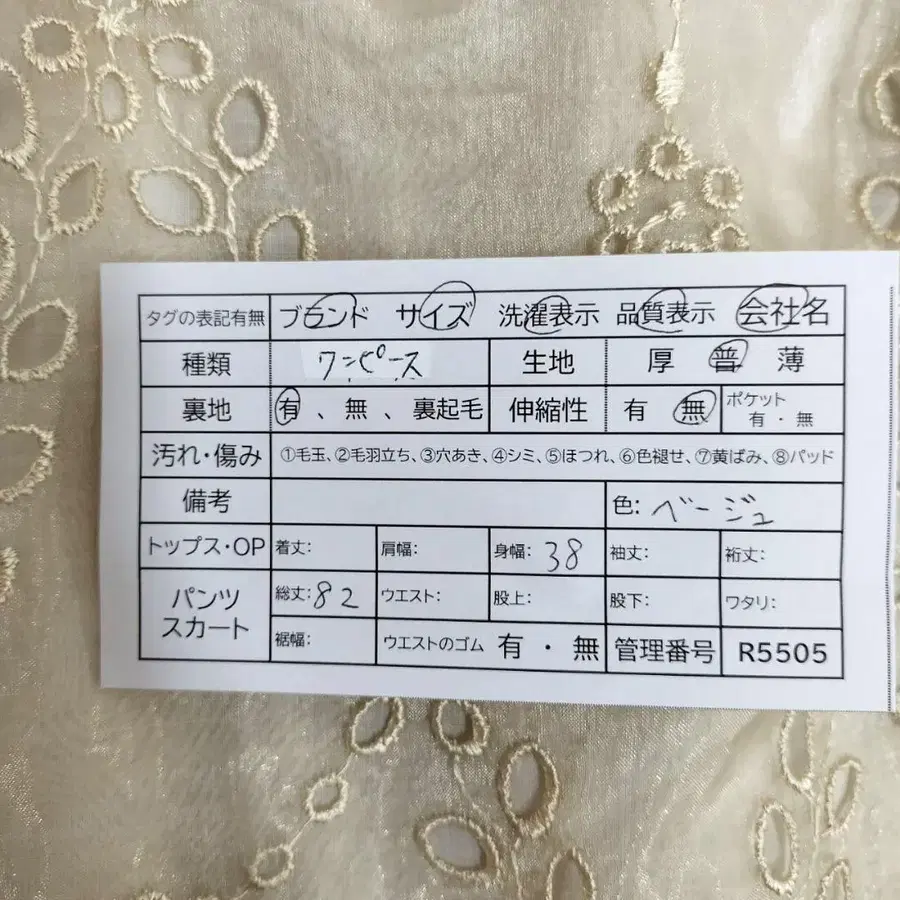 タグの表記有無 ブランド サイズ 洗濯表示 品質表示 会社名
種類 ワンピース 生地 厚 普 薄
裏地 有、無、裏起毛 伸縮性 有 無 ポケット 有・無
汚れ・傷み ①毛玉、②毛羽立ち、③穴あき、④シミ、⑤ほつれ、⑥色褪せ、⑦黄ばみ、⑧パッド
備考 色: ベージュ
トップス・OP 着丈: 肩幅: 身幅: 38 袖丈: 裄丈:
パンツ スカート 総丈: 82 ウエスト: 股上: 股下: ワタリ:
裾幅: ウエストのゴム 有・無 管理番号 R5505